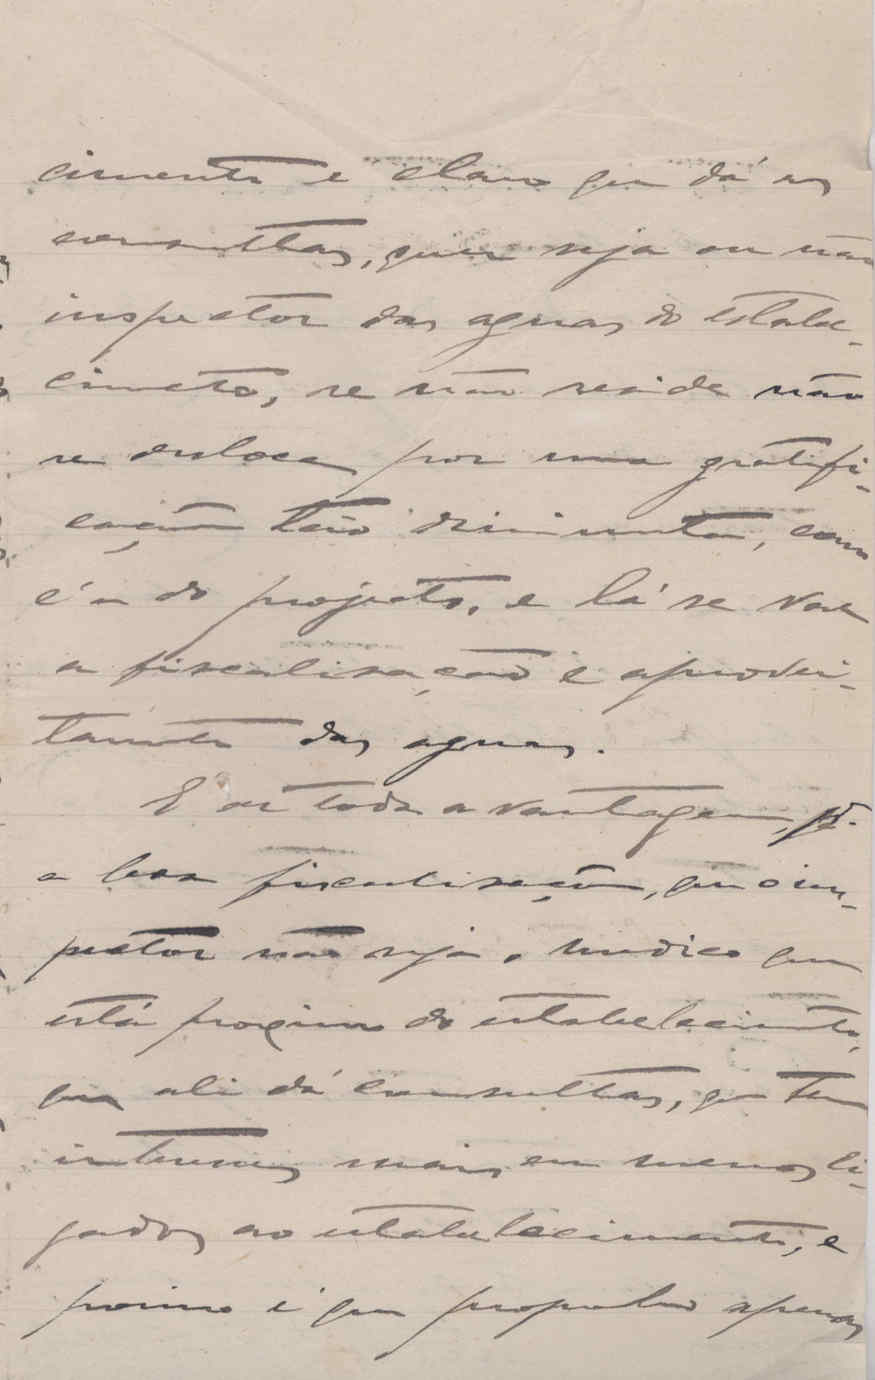 cimento e claro que dá as
consultas, quer seja ou não
inspector das aguas do estabele-
cimeto, se não reside não
se desloca por uma gratifi-
cação tão diminuta, como
é a do projecto, e lá se vae
a fiscalisação e aprovei-
tamento das aguas.
E ar toda a vantagem, pª.
a boa fiscalisação, que o ins-
pector não seja o medico que
está proximo do estabelecimento,
que ali dá consultas, que tem
interesses mais ou menos li-
gados ao estabelecimento, e
porisso é que propunha apenas